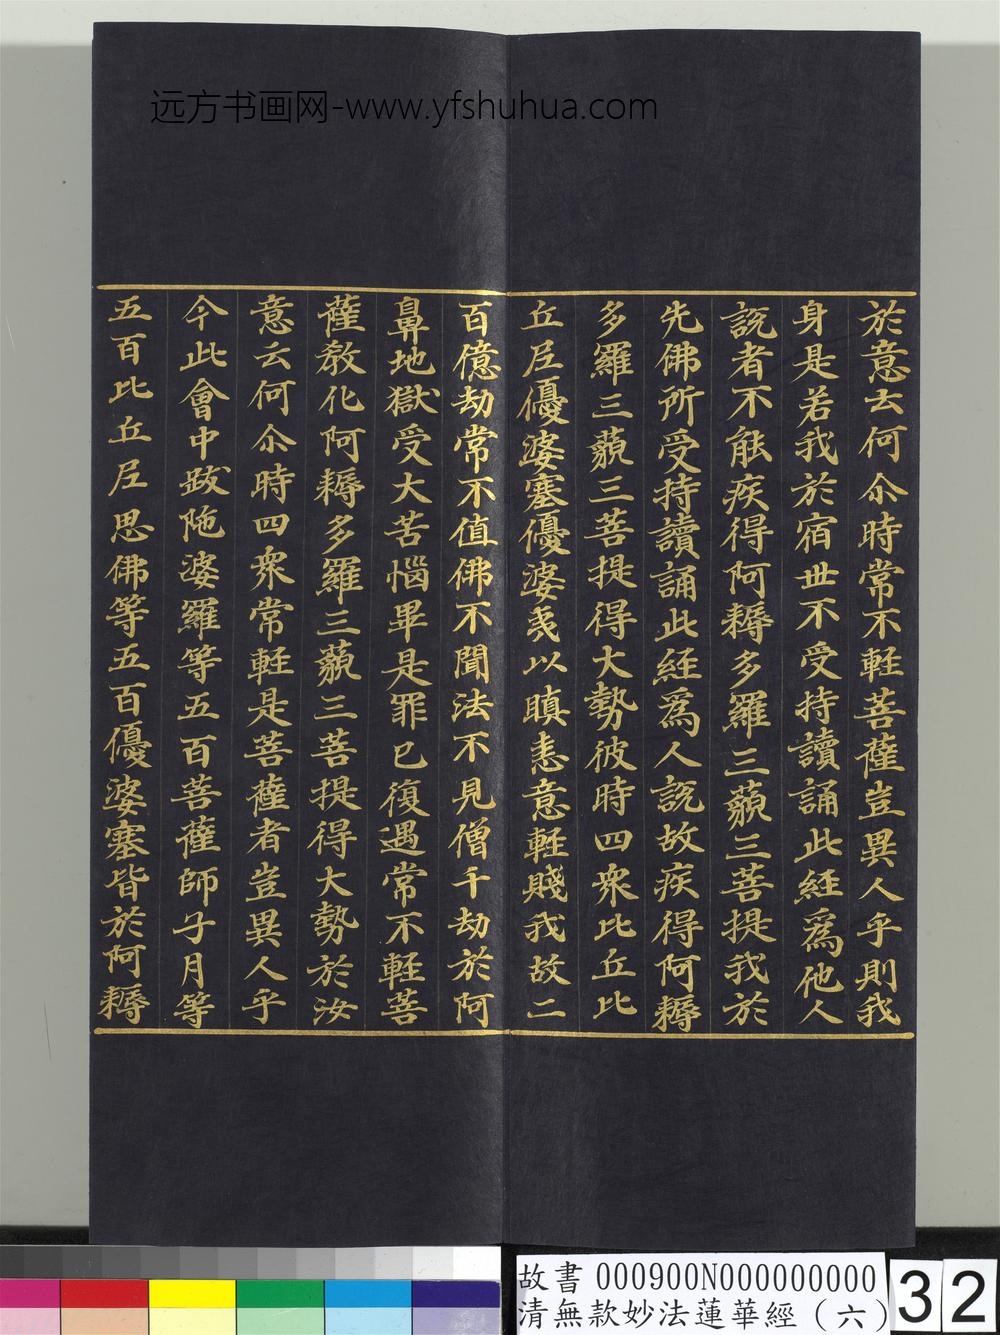 远方书画网-www.yfshuhua.com
於意云何尒時常不輕菩薩豈異人乎則我
身是若我於宿世不受持讀誦此經爲他人
説者不能疾得阿耨多羅三藐三菩提我於
先佛所受持讀誦此經爲人説故疾得阿耨
多羅三藐三菩提得大勢彼時四衆比丘比
丘尼優婆塞優婆夷以瞋恚意輕賤我故二
百億劫常不值佛不聞法不見僧千劫於阿
鼻地獄受大苦惱畢是罪已復遇常不輕菩
薩教化阿耨多羅三藐三菩提得大勢於汝
意云何尒時四衆常輕是菩薩者豈異人乎
今此會中跋陁婆羅等五百菩薩師子月等
五百比丘尼思佛等五百優婆塞皆於阿耨
故書 000900N000000000
清無款妙法蓮華經（六）
32